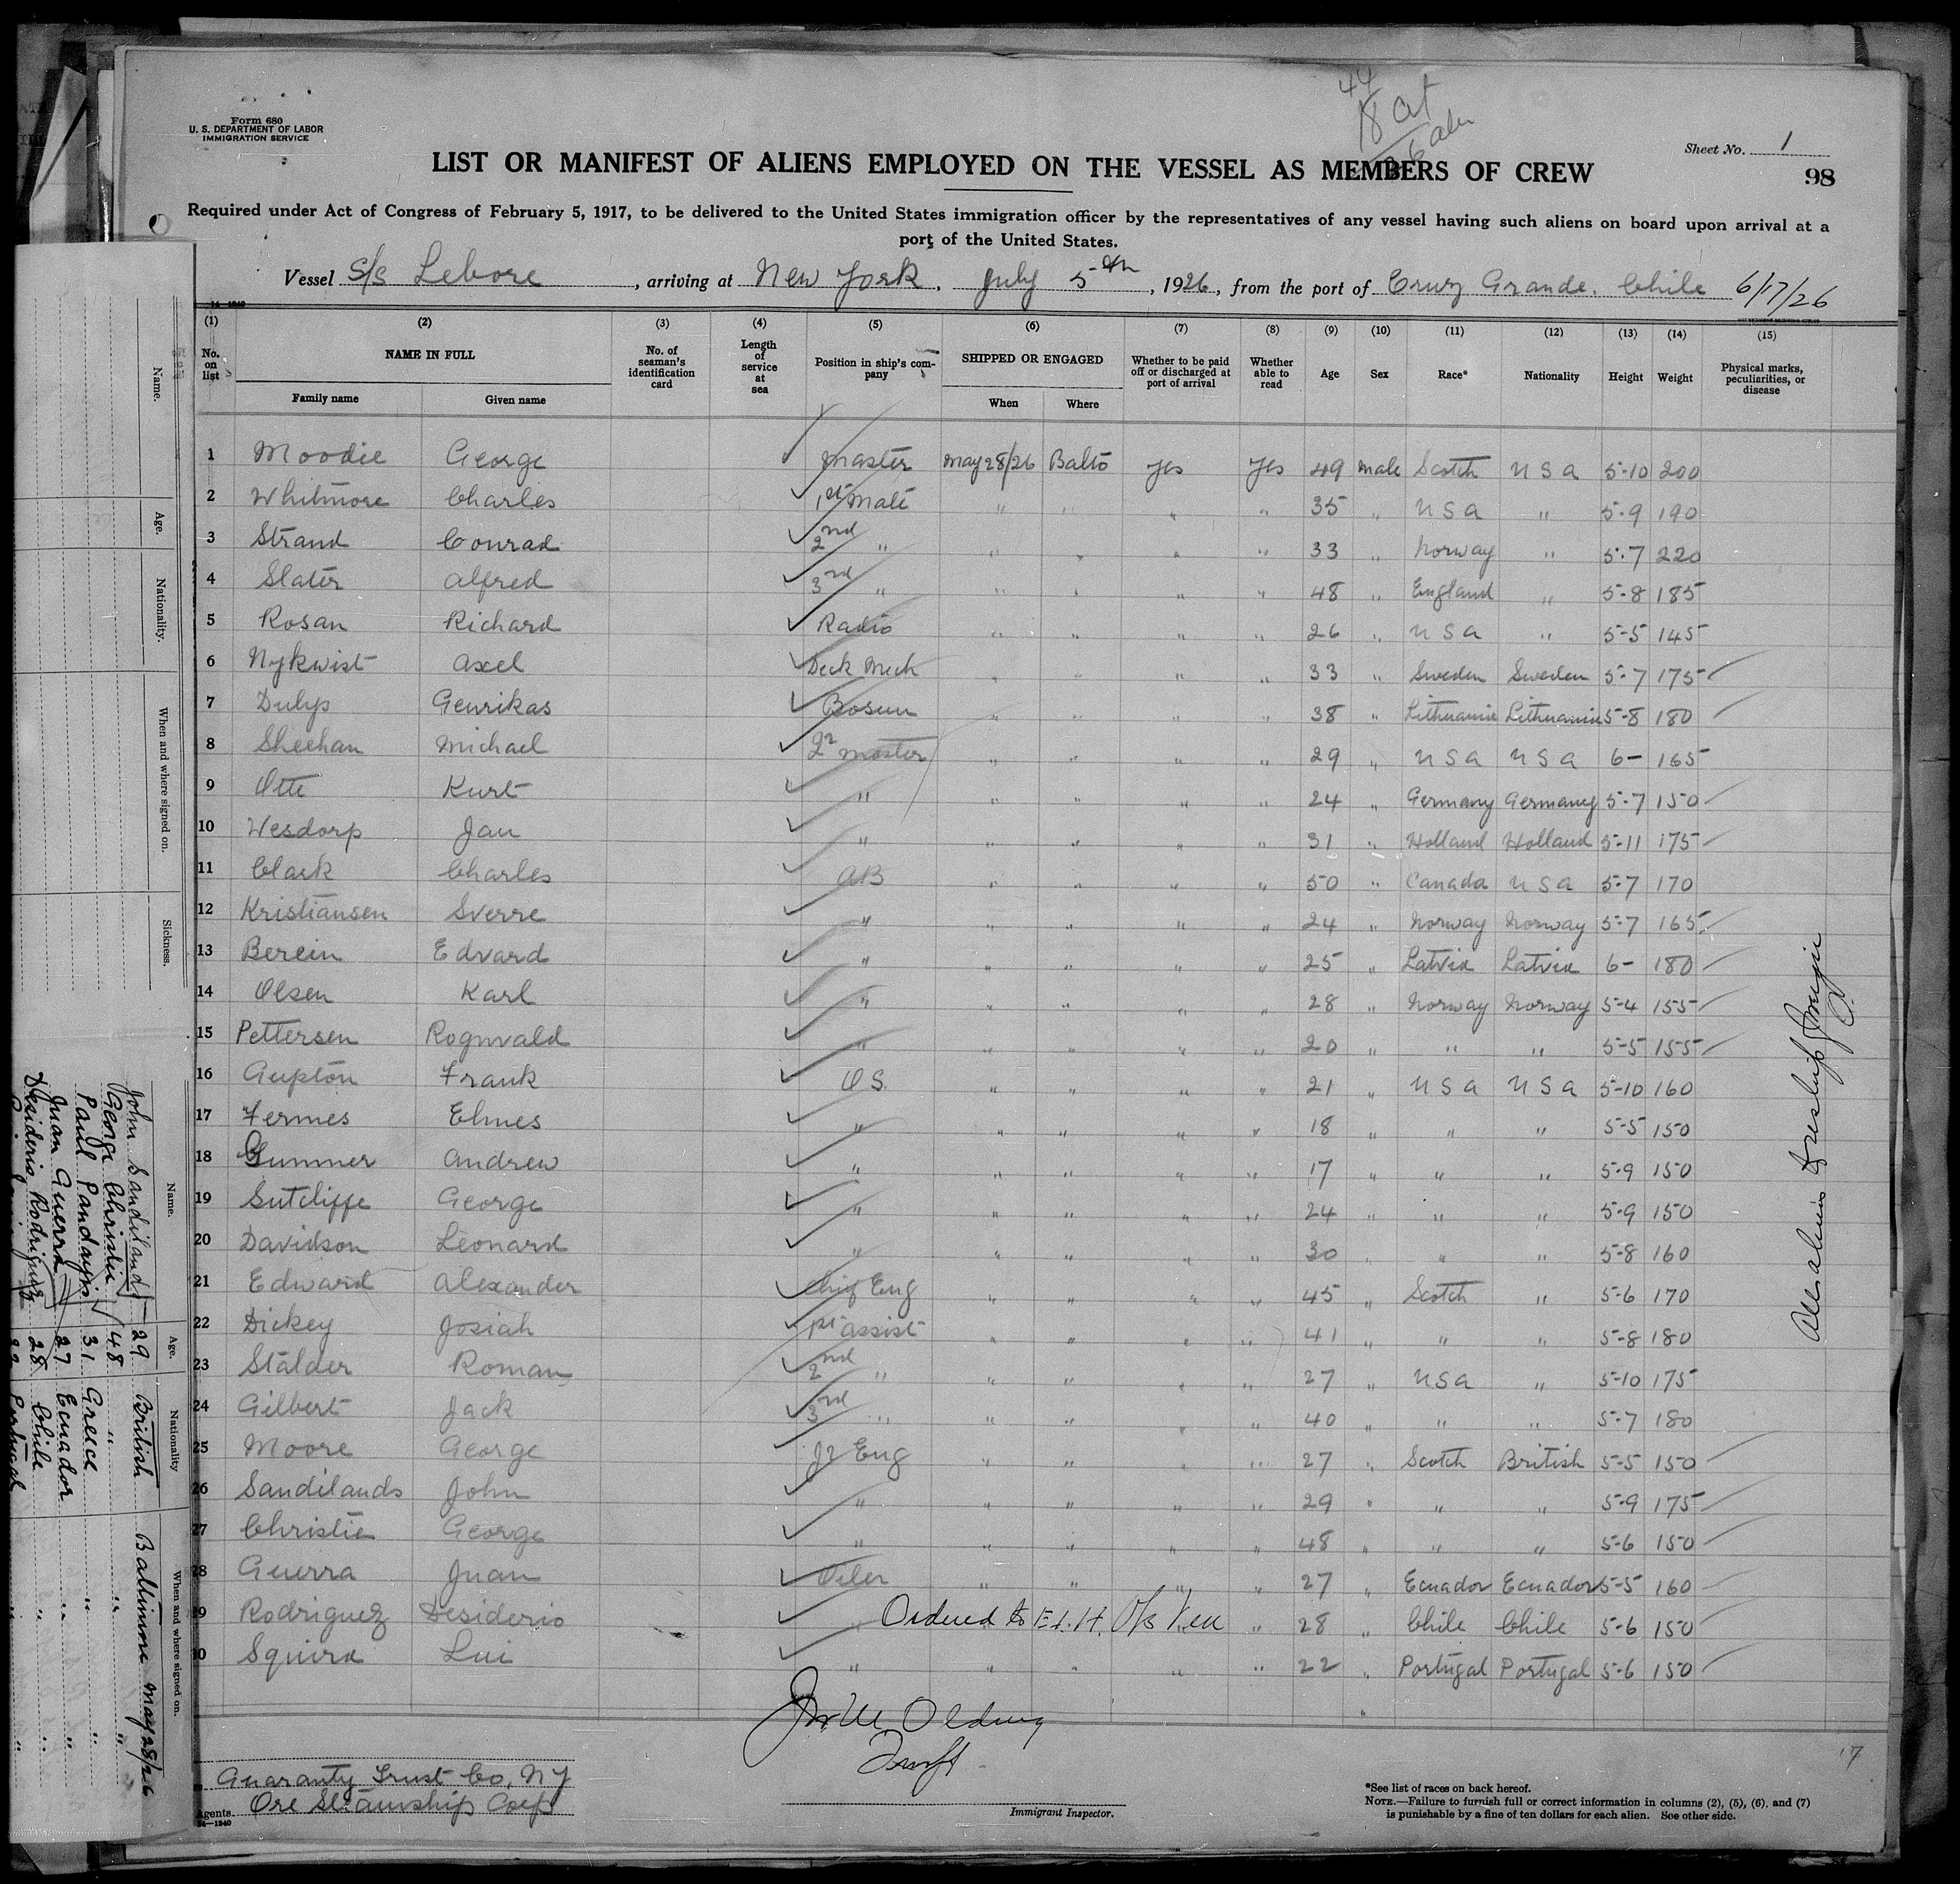 44
18 at
Form 680
U. S. DEPARTMENT OF LABOR
IMMIGRATION SERVICE
Sheet No. 1
LIST OR MANIFEST OF ALIENS EMPLOYED ON THE VESSEL AS MEMBERS OF CREW
98
Required under Act of Congress of February 5, 1917, to be delivered to the United States immigration officer by the representatives of any vessel having such aliens on board upon arrival at a
port of the United States.
Vessel S/S Lebore, arriving at New York, July 5th, 1926, from the port of Cruz Grande. Chile 6/17/26
14—1240
(1) (2) (3) (4) (5) (6) (7) (8) (9) (10) (11) (12) (13) (14) (15)
No. on list NAME IN FULL No. of seaman's identification card Length of service at sea Position in ship's company SHIPPED OR ENGAGED Whether to be paid off or discharged at port of arrival Whether able to read Age Sex Race* Nationality Height Weight Physical marks, peculiarities, or disease
Family name Given name When Where
1 Moodie George Master May 28/26 Balto Yes Yes 49 Male Scotch U S A 5-10 200
2 Whitmore Charles 1st Mate " " " " 35 " U S A " 5-9 190
3 Strand Conrad 2nd " " " " " 33 " Norway " 5-7 220
4 Slater Alfred 3rd " " " " " 48 " England " 5-8 185
5 Rosan Richard Radio " " " " 26 " U S A " 5-5 145
6 Nykwist Axel Deck Mech " " " " 33 " Sweden Sweden 5-7 175
7 Dulys Genrikas Bosun " " " " 38 " Lithuania Lithuania 5-8 180
8 Sheehan Michael Qr master " " " " 29 " U S A U S A 6- 165
9 Otte Kurt " " " " " 24 " Germany Germany 5-7 150
10 Wesdorp Jan " " " " " 31 " Holland Holland 5-11 175
11 Clark Charles AB " " " " 50 " Canada U S A 5-7 170
12 Kristiansen Sverre " " " " " 24 " Norway Norway 5-7 165
13 Berein Edvard " " " " " 25 " Latvia Latvia 6- 180
14 Olsen Karl " " " " " 28 " Norway Norway 5-4 155
15 Pettersen Rognvald " " " " " 20 " " " 5-5 155
16 Gupton Frank O S. " " " " 21 " U S A U S A 5-10 160
17 Fermes Elmes " " " " " 18 " " " 5-5 150
18 Gummer Andrew " " " " " 17 " " " 5-9 150
19 Sutcliffe George " " " " " 24 " " " 5-9 150
20 Davidson Leonard " " " " " 30 " " " 5-8 160
21 Edward Alexander Chief Eng " " " " 45 " Scotch " 5-6 170
22 Dickey Josiah 1st Assist " " " " 41 " " " 5-8 180
23 Stalder Roman 2nd " " " " " 27 " U S A " 5-10 175
24 Gilbert Jack 3rd " " " " " 40 " " " 5-7 180
25 Moore George Jr Eng " " " " 27 " Scotch British 5-5 150
26 Sandilands John " " " " " 29 " " " 5-9 175
27 Christie George " " " " " 48 " " " 5-6 150
28 Guerra Juan Oiler " " " " 27 " Ecuador Ecuador 5-5 160
29 Rodriguez Desiderio " Ordered to E.I.H. " 28 " Chile Chile 5-6 150
30 Squira Lui " " " " " 22 " Portugal Portugal 5-6 150
Guaranty Trust Co, NY
Ore Steamship Corp
Agents.
14—1240
Immigrant Inspector.
*See list of races on back hereof.
NOTE.—Failure to furnish full or correct information in columns (2), (5), (6), and (7)
is punishable by a fine of ten dollars for each alien. See other side.
17
Name. Age. Nationality. When and where signed on. Sickness.
Name. Age. Nationality When and where signed on.
John Sandilands 29 British Baltimore May 28/26
George Christie 48 " " "
Paul Pandazis 31 Greece " "
Juan Guerra 27 Ecuador " "
Desiderio Rodriguez 28 Chile " "
22 Portugal " "